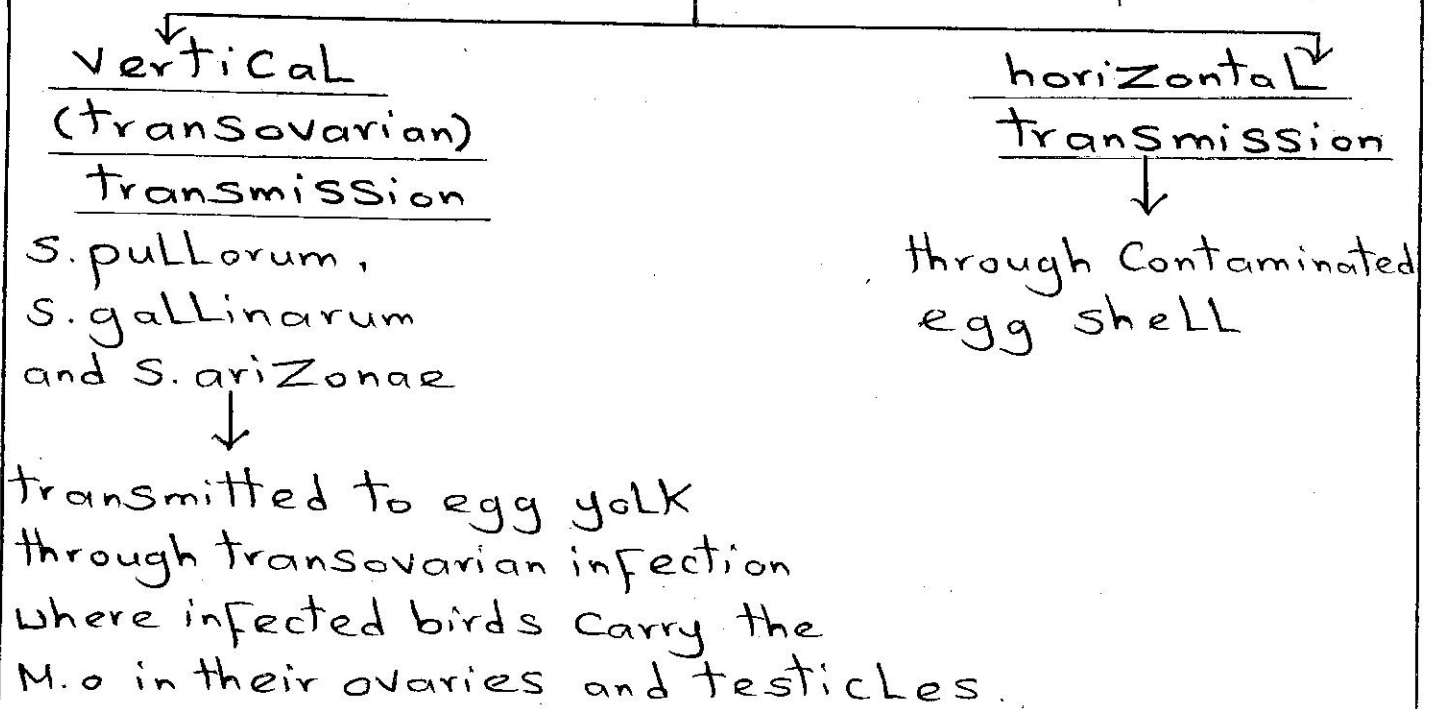 vertical
(transovarian)
transmission
S. pullorum,
S. gallinarum
and S. arizonae
transmitted to egg yolk
through transovarian infection
where infected birds carry the
M.o in their ovaries and testicles.
horizontal
transmission
through contaminated
egg shell